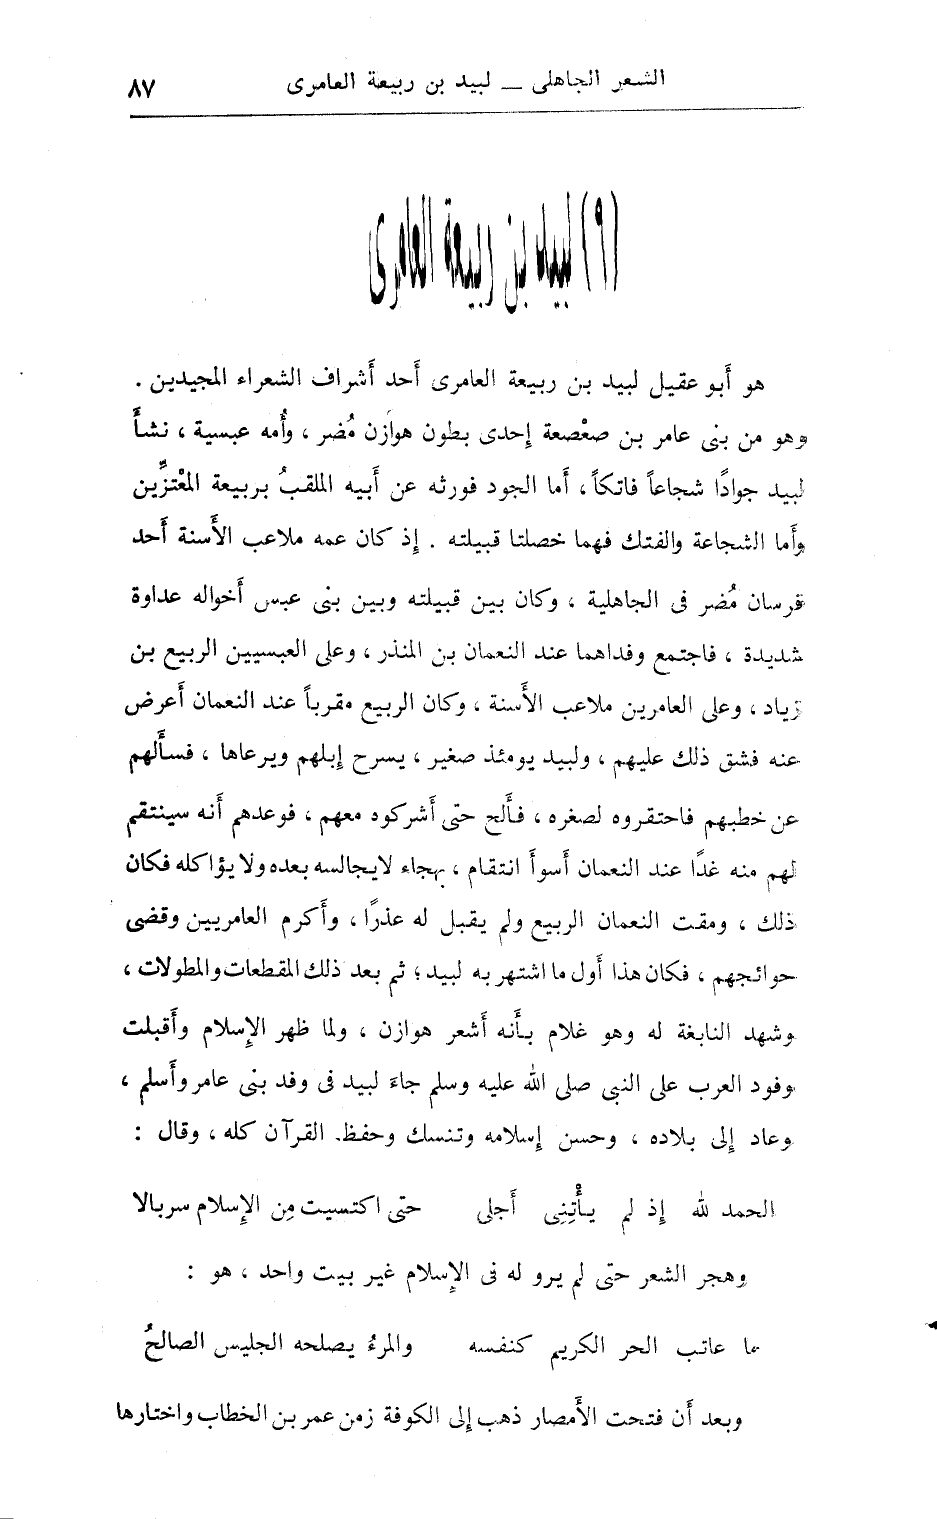 الشعر الجاهلى — لبيد بن ربيعة العامرى ٨٧
(٩) لبيد بن ربيعة العامرى
هو أبو عقيل لبيد بن ربيعة العامرى أحد أشراف الشعراء المجيدين .
وهو من بنى عامر بن صعْصعة إحدى بطون هوازن مُضر ، وأُمه عبسية ، نشأ
لبيد جوادًا شجاعاً فاتكاً ، أما الجود فورثه عن أبيه الملقبُ بربيعة المْعتزِّين
وأما الشجاعة والفتك فهما خصلتا قبيلته . إذ كان عمه ملاعب الأَسنة أَحد
فرسان مُضر فى الجاهلية ، وكان بين قبيلته وبين بنى عبس أخواله عداوة
شديدة ، فاجتمع وفداهما عند النعمان بن المنذر ، وعلى العبسيين الربيع بن
زياد ، وعلى العامرين ملاعب الأَسنة ، وكان الربيع مقرباً عند النعمان أَعرض
عنه فشق ذلك عليهم ، ولبيد يومئذ صغير ، يسرح إبلهم ويرعاها ، فسأَلهم
عن خطبهم فاحتقروه لصغره ، فألح حتى أَشركوه معهم ، فوعدهم أنه سينتقم
لهم منه غدًا عند النعمان أسوأ انتقام ، بهجاء لايجالسه بعده ولا يؤاكله فكان
ذلك ، ومقت النعمان الربيع ولم يقبل له عذرًا ، وأَكرم العامريين وقضى
حوائجهم ، فكان هذا أول ما اشتهر به لبيد ؛ ثم بعد ذلك المقطعات والمطولات ،
وشهد النابغة له وهو غلام بأَنه أَشعر هوازن ، ولما ظهر الإِسلام وأَقبلت
وفود العرب على النبى صلى الله عليه وسلم جاءَ لبيد فى وفد بنى عامر وأَسلم ،
وعاد إلى بلاده ، وحسن إسلامه وتنسك وحفظ القرآن كله ، وقال :
الحمد لله إذ لم يأْتِنِى أَجلى حتى اكتسيت مِن الإِسلام سربالا
وهجر الشعر حتى لم يرو له فى الإِسلام غير بيت واحد ، هو :
ما عاتب الحر الكريم كنفسه والمرءُ يصلحه الجليس الصالحُ
وبعد أن فتحت الأَمصار ذهب إلى الكوفة زمن عمر بن الخطاب واختارها